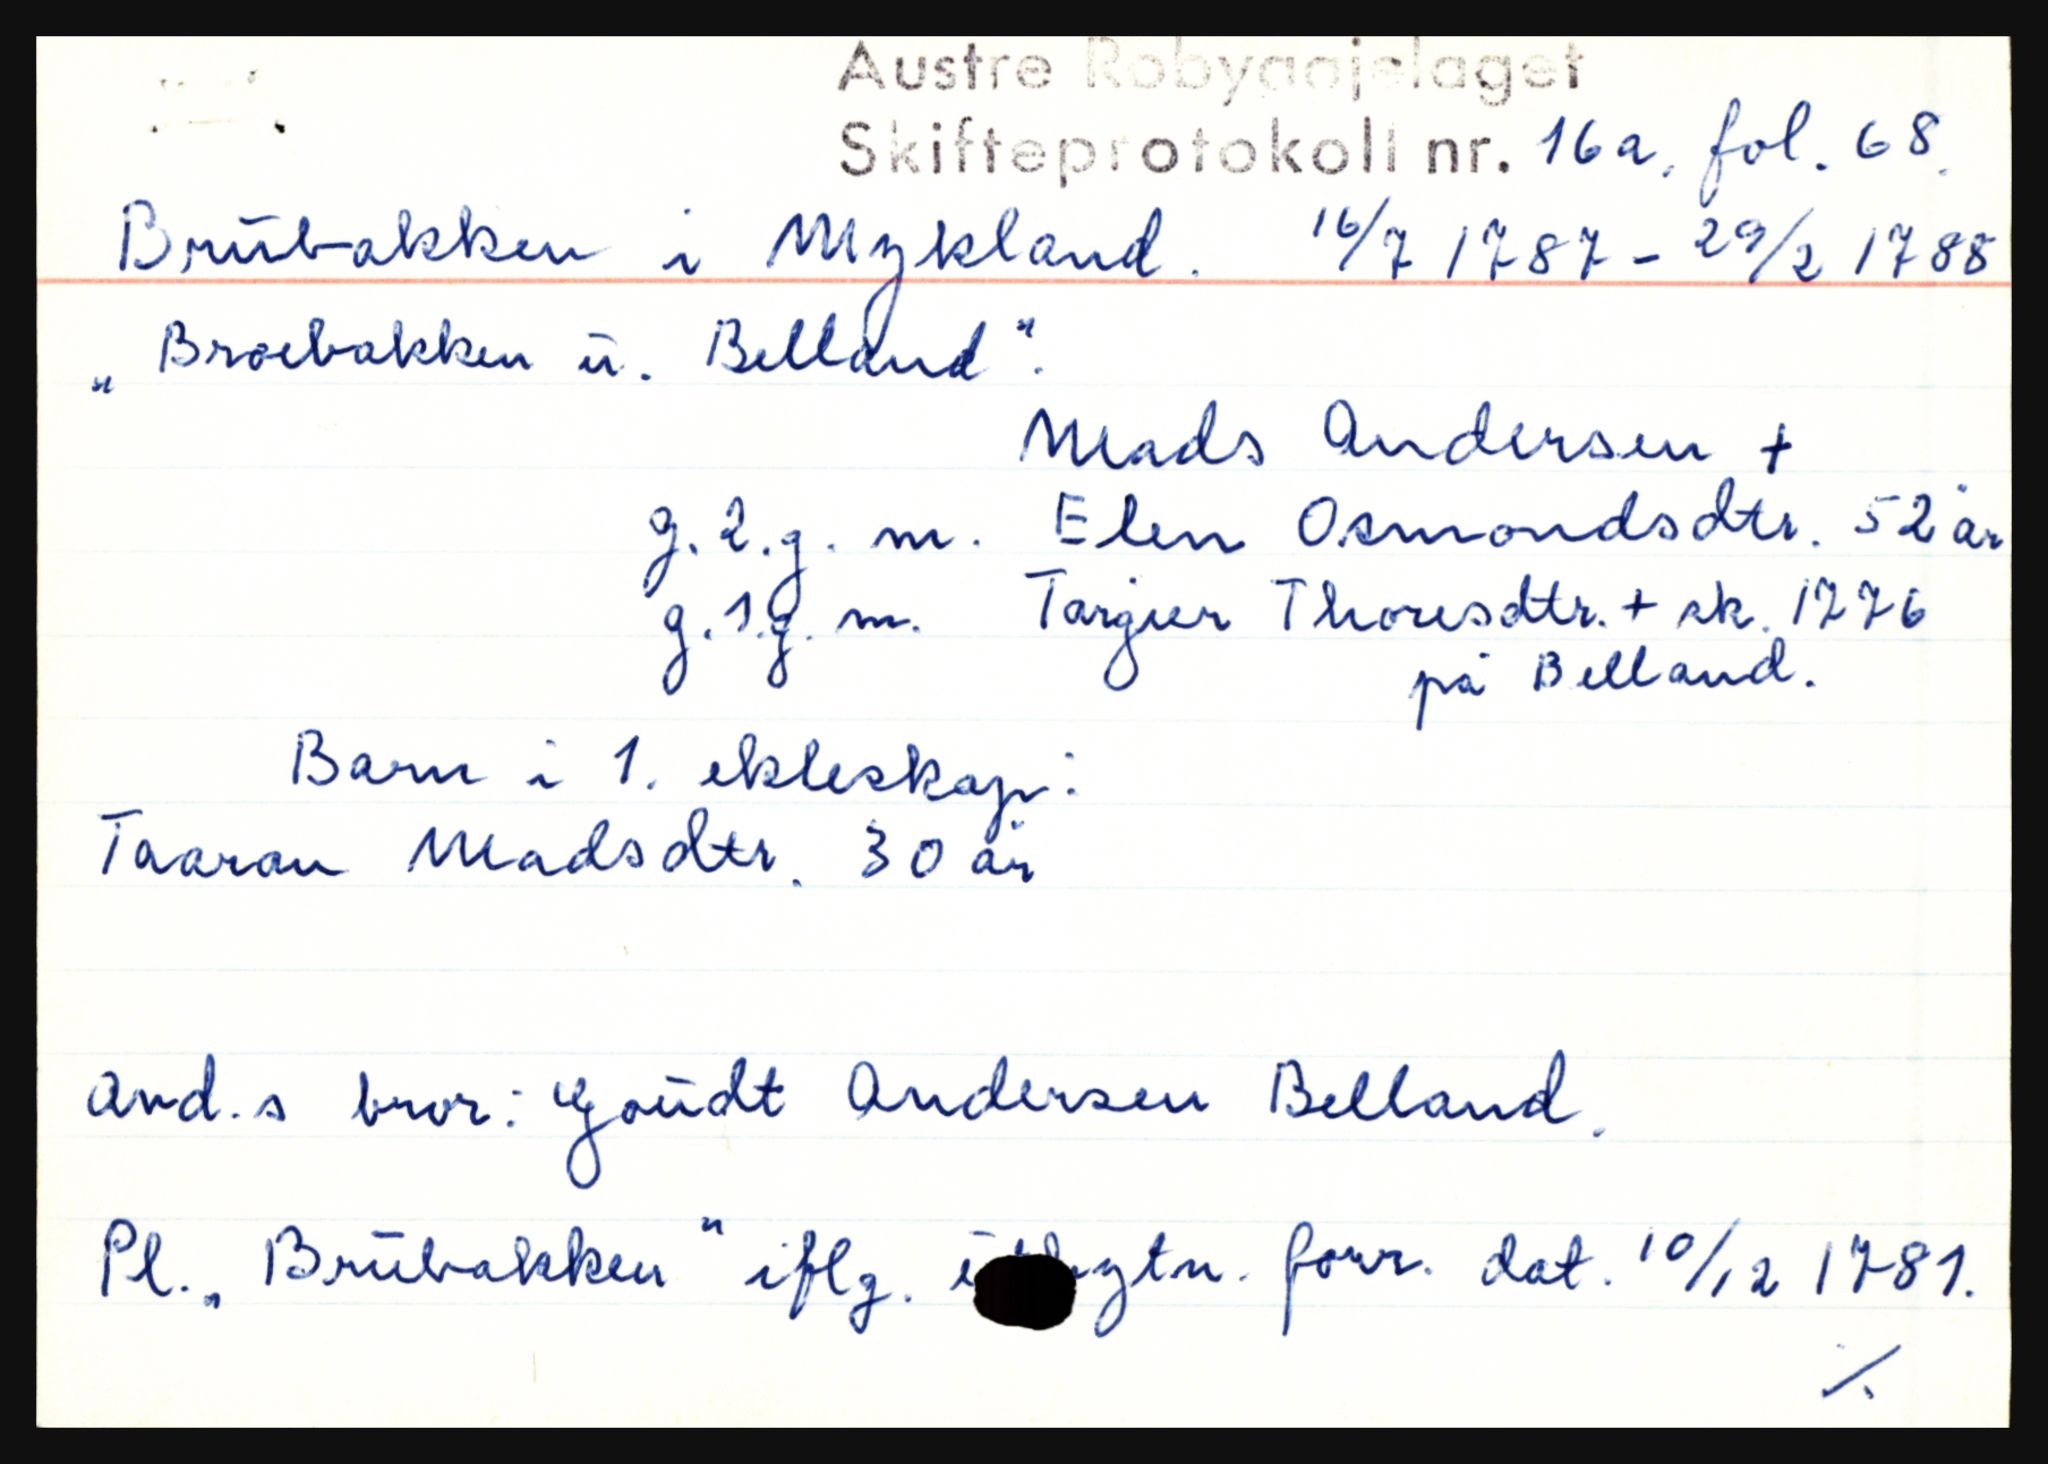 Austre Robyggjelaget
Skifteprotokoll nr. 16a, fol. 68.
Brubakken i Mykland. 16/7 1787 - 29/2 1788
„Broebakken u. Belland“.
Mads Andersen +
g. 2. g. m. Elen Osmondsdtr. 52 år
g. 1. g. m. Targier Thoresdtr. + sk. 1776
på Belland.
Barn i 1. ekteskap:
Taaran Madsdtr. 30 år
avd.s bror: Goudt Andersen Belland.
Pl. „Brubakken“ iflg. forr. dat. 10/12 1781.